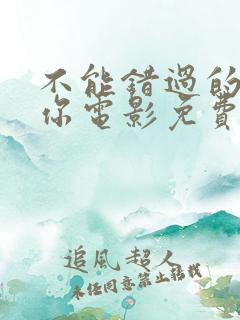 不能错过的
你电影免费
追风超人
未经同意禁止转载